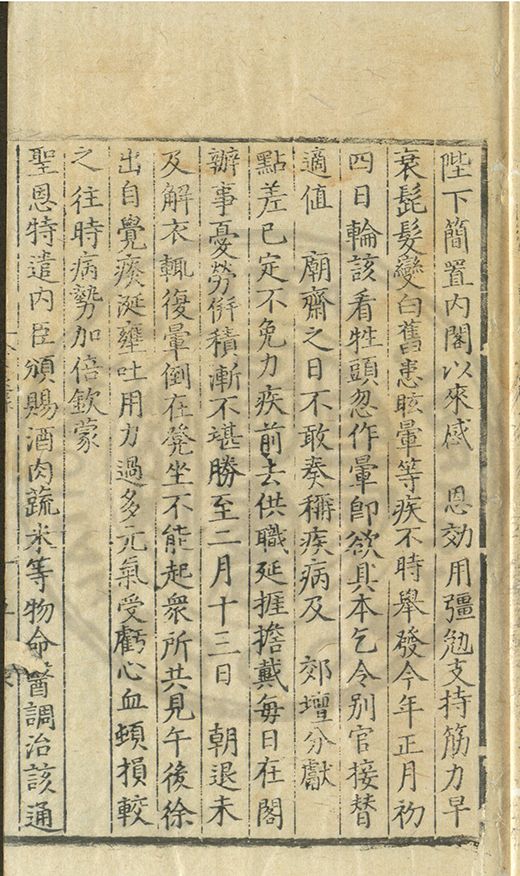 陛下簡置内閣以來感　恩効用彊勉支持筋力早
衰髭髮變白舊患眩暈等疾不時舉發今年正月初
四日輪該看牲頭忽作暈卽欲具本乞令别官接替
適值　廟齋之日不敢奏稱疾病及　郊壇分獻
點差已定不免力疾前去供職延捱擔戴每日在閣
辦事憂勞併積漸不堪勝至二月十三日　朝退未
及解衣輒復暈倒在凳坐不能起衆所共見午後徐
出自覺痰涎壅吐用力過多元氣受虧心血頓損較
之往時病勢加倍欽蒙
聖恩特遣内臣頒賜酒肉蔬米等物命醫調治該通